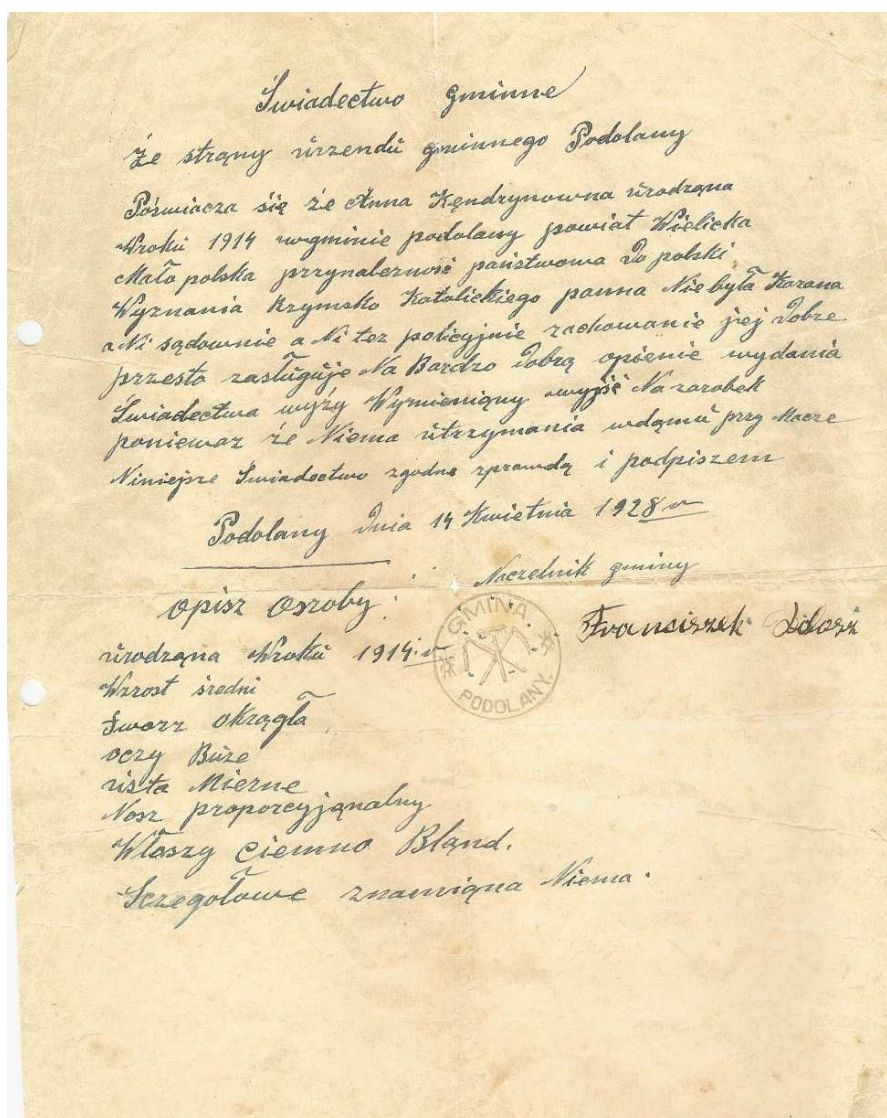 Świadectwo gminne
Że strąny urzendu gminnego Podolany
Poświacza się że Anna Kęndrynowna urodząna
Wroku 1914 wgminie podolany powiat Wielicka
Mało polska przynalezność państwowa Do polski
Wyznania Rzymsko Katolickiego panna Niebyła Karana
a Ni sądownie a Ni tez policyjnie zachowanie jej Dobze
przesto zasługuje Na Bardzo Dobrą opienie wydania
Świadectwa wyży Wymieniąny wyjść Na zarobek
poniewaz że Niema utrzymania wdąmu przy Macze
Niniejsze Świadectwo zgodne zprawdą i podpiszem
Podolany Dnia 14 Kwietnia 1928 r
Naczelnik gminy
Franciszek
opisz Oszoby:
GMINA PODOLANY.
urodząna Wroku 1914 r
Wzrost średni
tworz okrągła
oczy Buże
usta Mierne
Nosz proporcyjąnalny
Włoszy Ciemno Bląnd.
Sczegołowe znamiąna Niema.